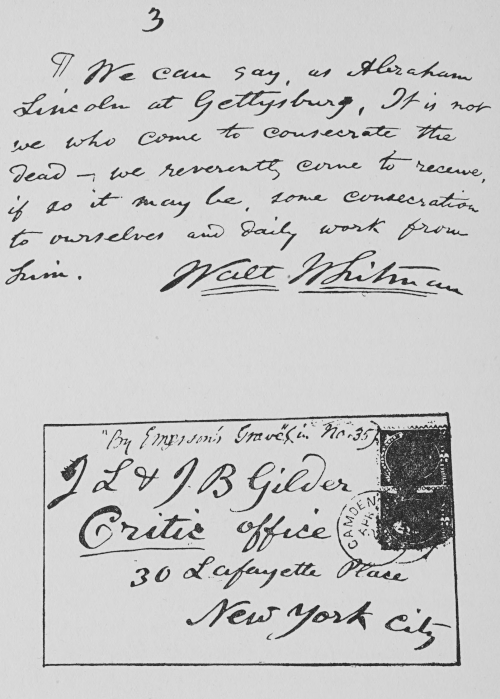 3
¶ We can say, as Abraham
Lincoln at Gettysburg, It is not
we who come to consecrate the
dead — we reverently come to receive,
if so it may be, some consecration
to ourselves and daily work from
him.
Walt Whitman
"By Emerson's Grave" in No. 35
J L & J B Gilder
Critic office
30 Lafayette Place
New York City
CAMDEN